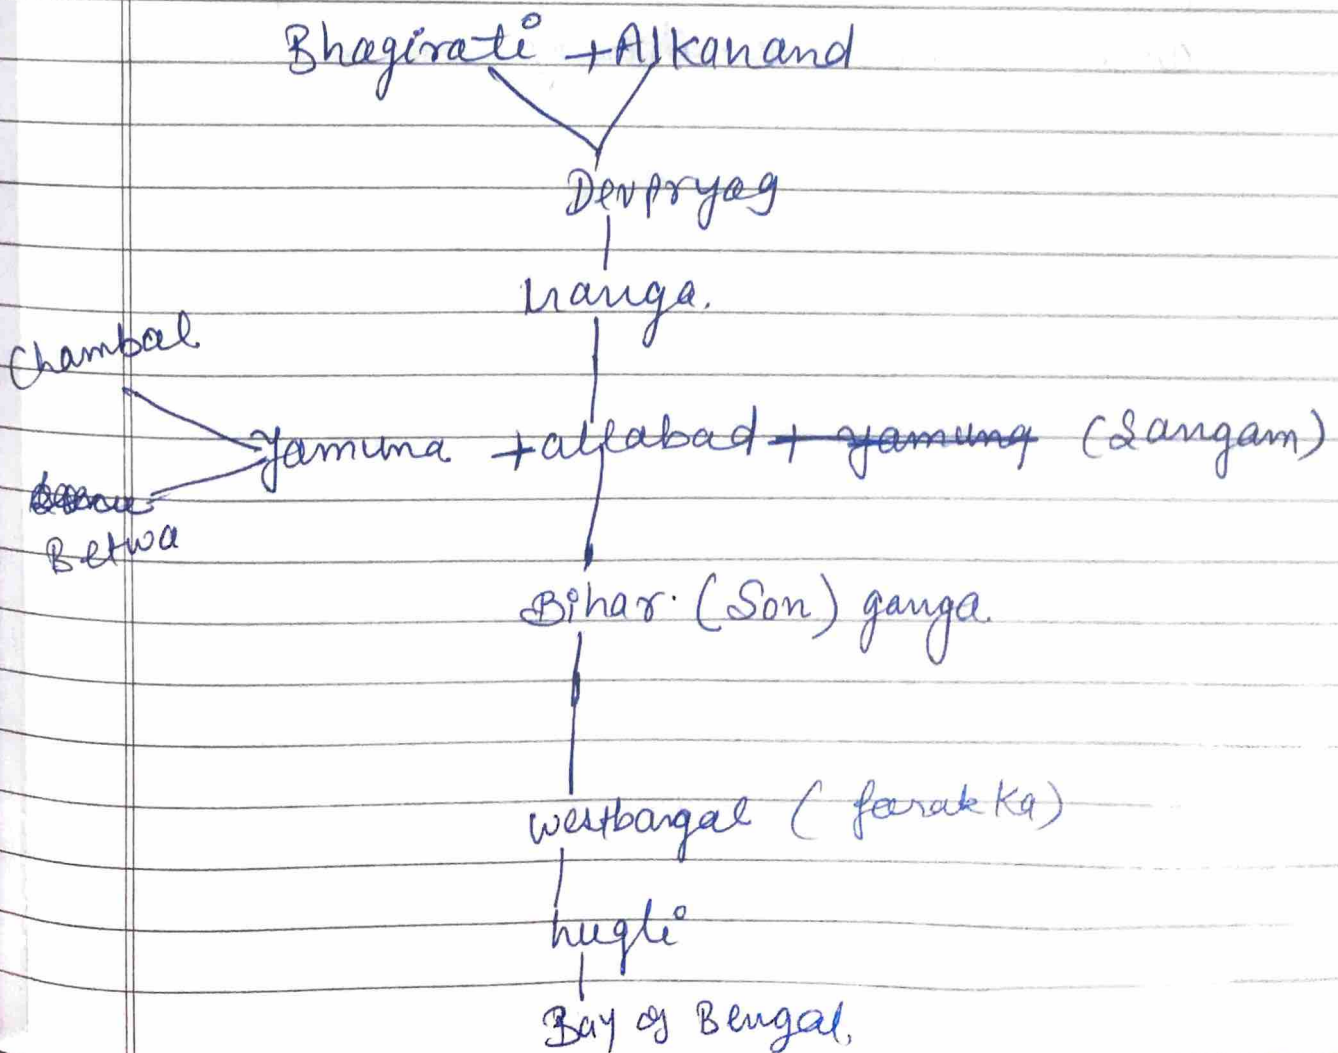 Bhagirati + Alkanand
Devpryag
Ganga.
Chambal
Yamuna + allabad + yamuna (Sangam)
Betwa
Bihar. (Son) ganga.
westbangal (farakka)
hugli
Bay of Bengal.